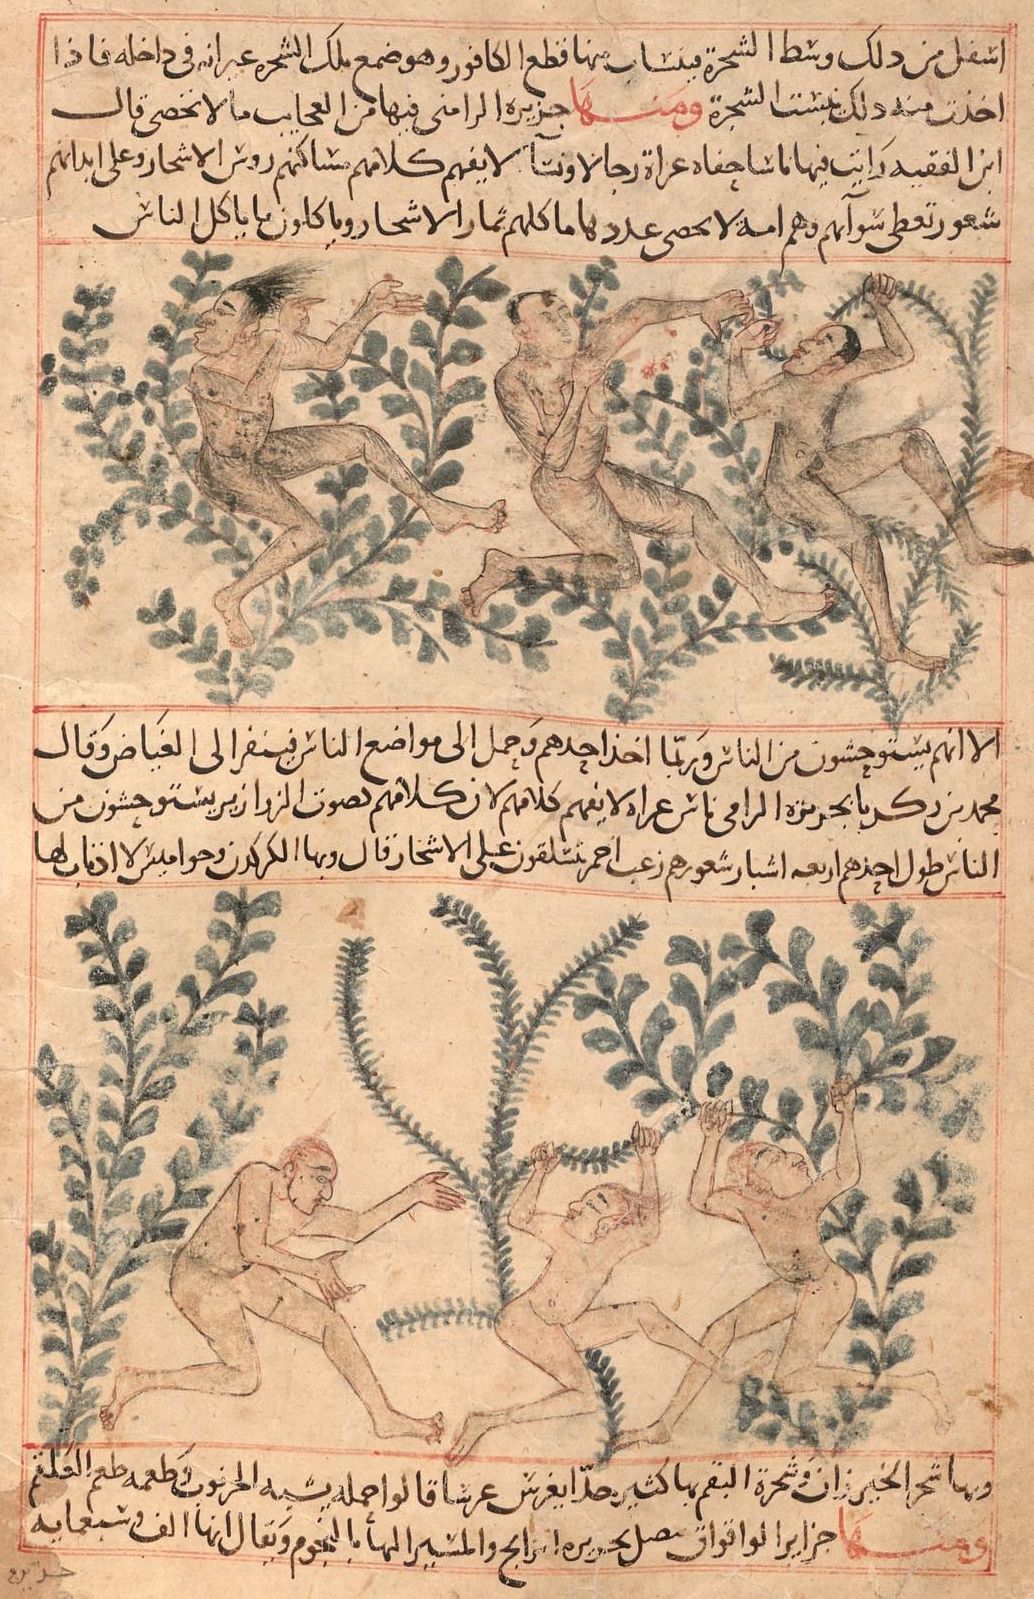 اسفل من ذلك وسط الشجرة فينساب منها قطع الكافور وهو صمغ تلك الشجرة غير انه فى داخله فاذا
اخذت منه ذلك يبست الشجرة ومنها جزيرة الرامنى فيها من العجايب ما لا تحصى قال
ابن الفقيه رايت فيها ناسا حفاه عراة رجالا ونسآ لا يفهم كلامهم مساكنهم روس الاشجار وعلى ابدانهم
شعور تغطى سوآتهم وهم امة لا يحصى عددها ماكلهم ثمار الاشجار وياكلون ما ياكل الناس
الا انهم يستوحشون من الناس وربما اخذ احدهم وحمل الى مواضع الناس فينفر الى الغياض وقال
محمد بن زكريا بجزيرة الرامى ناس عراه لا يفهم كلامهم لان كلامهم بصوت الزرازير يستوحشون من
الناس طول احدهم اربعه اشبار شعورهم زغب احمر يتسلقون على الاشجار قال وبها الكركدن وجواميس لا اذناب لها
وبها شجر الخيزران وشجرة البقم بها كثيرة جدا يغرس غرسا قالوا حمله يشبه الخرنوب وطعمه طعم العلقم
ومنها جزاير الواقواق تتصل بجزيرة الزابج والمسير اليها بالنجوم ويقال انها الف وسبعمايه